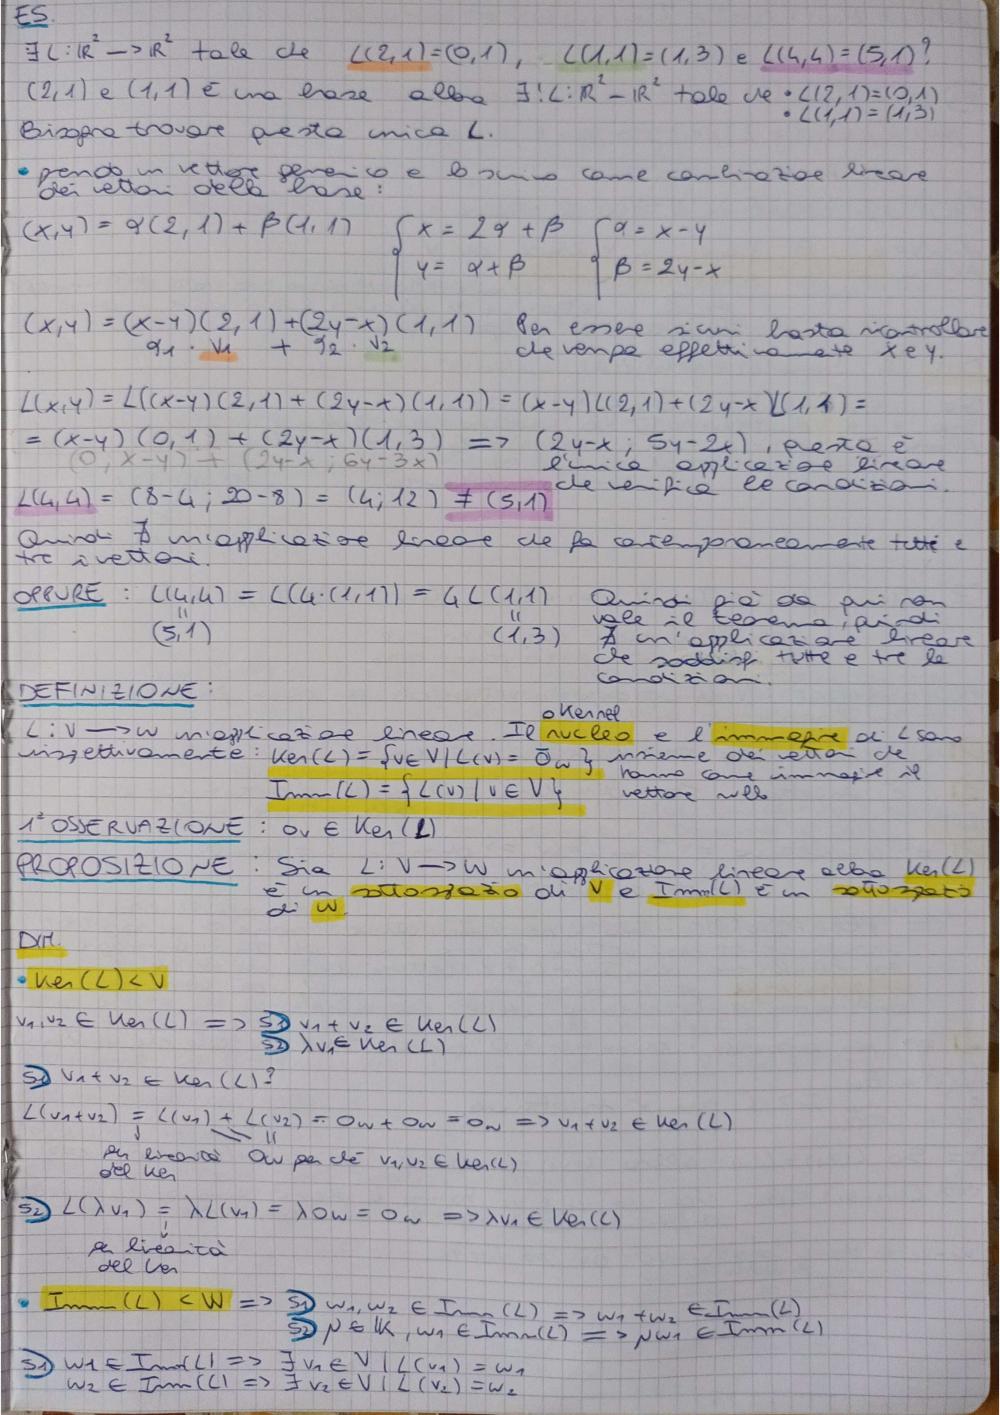 ES.
∃ L: ℝ² → ℝ² tale che L(2,1)=(0,1), L(1,1)=(1,3) e L(4,4)=(5,1)?
(2,1) e (1,1) È una base allora ∃! L: ℝ² – ℝ² tale che • L(2,1)=(0,1)
• L(1,1)=(1,3)
Bisogna trovare questa unica L.
• prendo un vettore generico e lo scrivo come combinazione lineare
dei vettori della base:
(x,y) = α(2,1) + β(1,1) { x = 2α + β { α = x-y
y = α+β β = 2y-x
(x,y) = (x-y)(2,1)+(2y-x)(1,1) Per essere sicuri basta ricontrollare
a1 · v1 + a2 · v2 che venga effettivamente x e y.
L(x,y) = L((x-y)(2,1) + (2y-x)(1,1)) = (x-y)L(2,1)+(2y-x)L(1,1) =
= (x-y)(0,1) + (2y-x)(1,3) => (2y-x ; 5y-2x), questa è
(0, x-y) + (2y-x ; 6y-3x) l'unica applicazione lineare
che verifica le condizioni.
L(4,4) = (8-4 ; 20-8) = (4;12) ≠ (5,1)
Quindi ∄ un'applicazione lineare che fa contemporaneamente tutti e
tre i vettori.
OPPURE : L(4,4) = L(4·(1,1)) = 4L(1,1) Quindi già da qui non
" " vale il teorema, quindi
(5,1) (1,3) ∄ un'applicazione lineare
che soddisfi tutte e tre le
condizioni.
DEFINIZIONE:
o Kernel
L: V → W un'applicazione lineare. Il nucleo e l'immagine di L sono
rispettivamente: Ker(L) = {v∈V | L(v) = 0w} insieme dei vettori che
hanno come immagine il
Imm(L) = { L(v) | v ∈ V } vettore nullo
1ª OSSERVAZIONE : 0v ∈ Ker(L)
PROPOSIZIONE : Sia L: V → W un'applicazione lineare allora Ker(L)
È un sottospazio di V e Imm(L) È un sottospazio
di W.
DIM.
• Ker(L) < V
v1, v2 ∈ Ker(L) => S1) v1 + v2 ∈ Ker(L)
S2) λv1 ∈ Ker(L)
S1) v1+v2 ∈ Ker(L)?
L(v1+v2) = L(v1) + L(v2) = 0w + 0w = 0w => v1+v2 ∈ Ker(L)
per linearità 0w perché v1,v2 ∈ Ker(L)
del Ker
S2) L(λv1) = λL(v1) = λ0w = 0w => λv1 ∈ Ker(L)
per linearità
del Ker
• Imm(L) < W => S1) w1,w2 ∈ Imm(L) => w1+w2 ∈ Imm(L)
S2) μ ∈ 𝕂, w1 ∈ Imm(L) => μw1 ∈ Imm(L)
S1) w1 ∈ Imm(L) => ∃ v1 ∈ V | L(v1) = w1
w2 ∈ Imm(L) => ∃ v2 ∈ V | L(v2) = w2